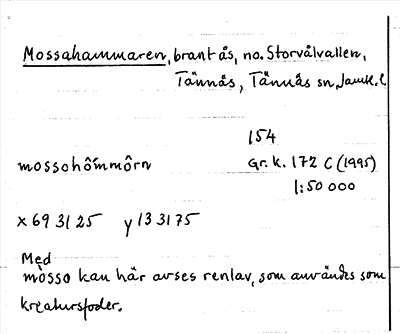 Mossahammaren, brant ås, no. Storvålvallen,
Tännäs, Tännäs sn, Jämtl. l.
154
mossohômmôrn Gr. k. 172 C (1995)
1:50 000
x 69 31 25 y 13 31 75
Med
mòsso kan här avses renlav, som användes som
kreatursfoder.